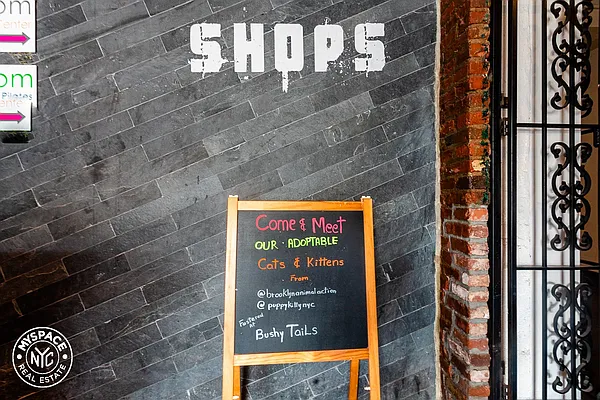 om
SHOPS
om
Pilates
Come & Meet
OUR · ADOPTABLE
Cats & Kittens
From
@brooklynanimalaction
@puppykittynyc
Fostered
at
Bushy TaiLs
MYSPACE
NYC
REAL ESTATE